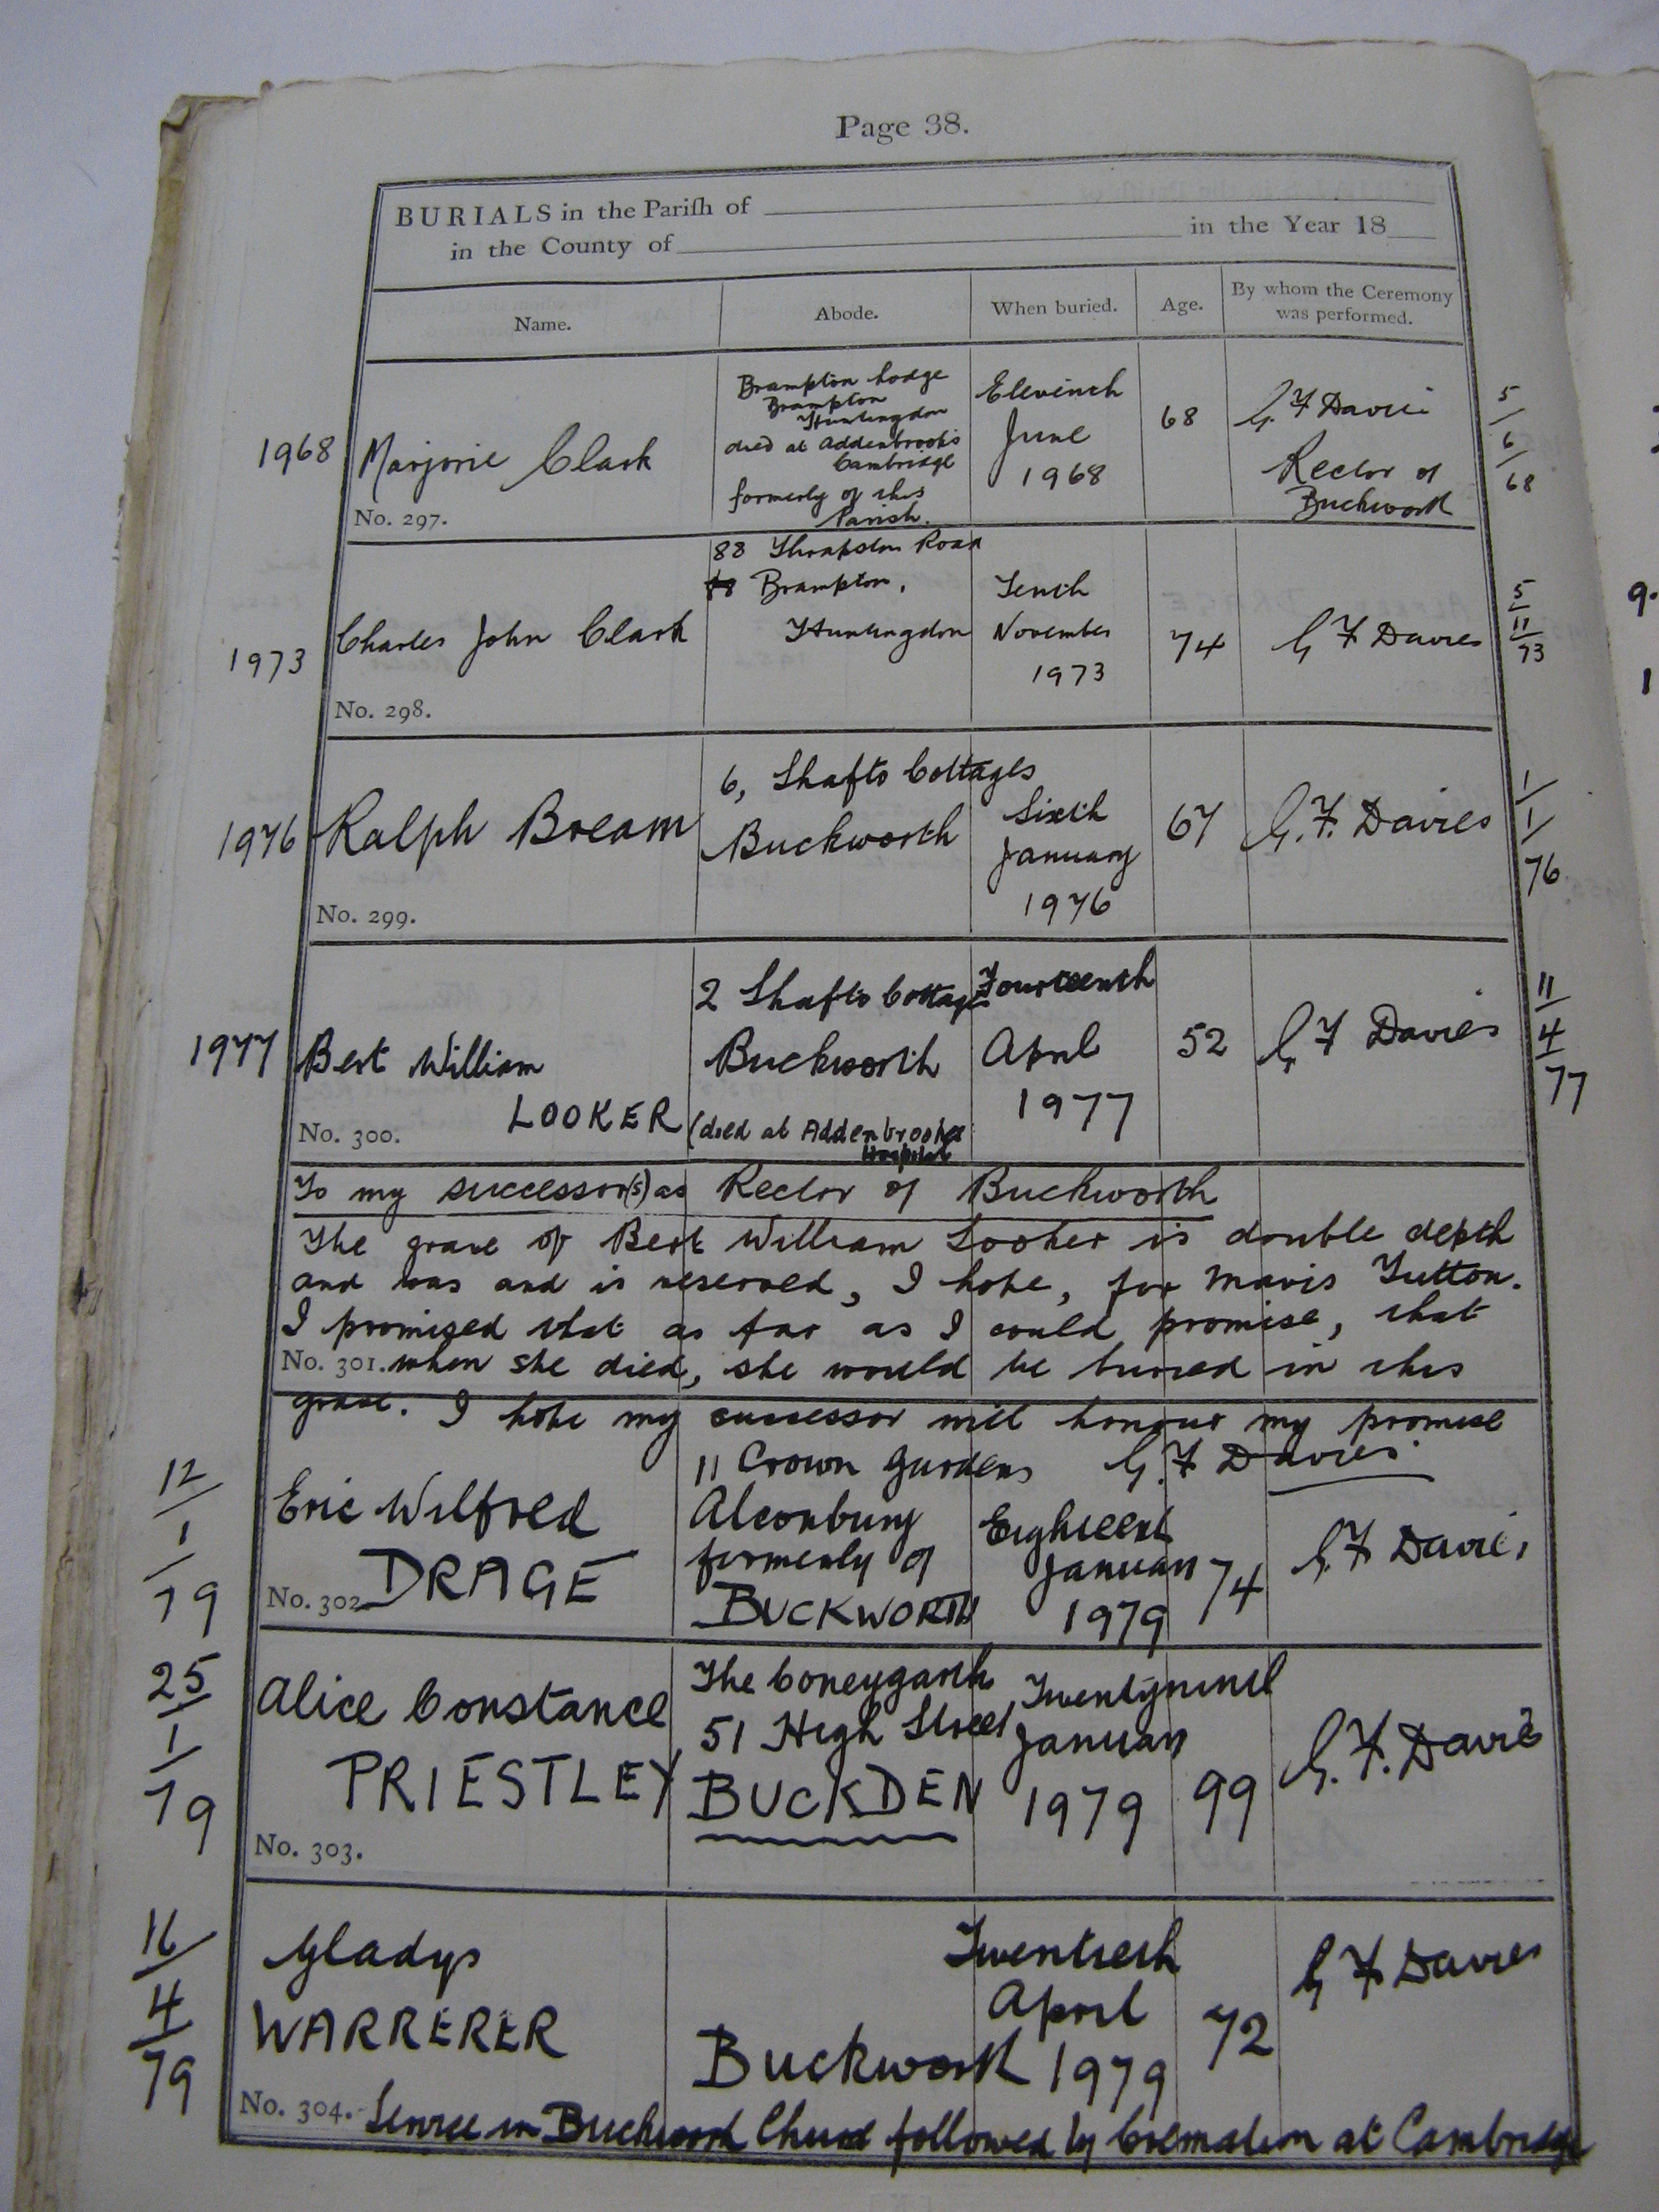 Page 38.
BURIALS in the Pariſh of
in the County of in the Year 18
Name. Abode. When buried. Age. By whom the Ceremony
was performed.
1968 Marjorie Clark
No. 297.
Brampton Lodge
Brampton
Huntingdon
died at Addenbrook's
Cambridge
formerly of this
Parish.
Eleventh
June
1968
68
G. F Davies
Rector of
Buckworth
5/6/68
1973 Charles John Clark
No. 298.
88 Thrapston Road
Brampton,
Huntingdon
Tenth
November
1973
74
G F Davies
5/11/73
1976 Ralph Bream
No. 299.
6, Shafto Cottages
Buckworth
Sixth
January
1976
67
G. F. Davies
1/1/76
1977 Bert William
LOOKER
No. 300.
2 Shafto Cottages
Buckworth
(died at Addenbrookes
Hospital
Fourteenth
April
1977
52
G F Davies
11/4/77
To my successor(s) as Rector of Buckworth
The grave of Bert William Looker is double depth
and was and is reserved, I hope, for Mavis Tutton.
I promised that as far as I could promise, that
No. 301. when she died, she would be buried in this
grave. I hope my successor will honour my promise
G. F Davies.
12/1/79
Eric Wilfred
No. 302. DRAGE
11 Crown Gardens
Alconbury
formerly of
BUCKWORTH
Eighteenth
January
1979
74
G. F Davies
25/1/79
Alice Constance
PRIESTLEY
No. 303.
The Coneygarth
51 High Street
BUCKDEN
Twentyninth
January
1979
99
G. F. Davies
16/4/79
Gladys
WARRERER
Buckworth
Twentieth
April
1979
72
G F Davies
No. 304. Service in Buckworth Church followed by Cremation at Cambridge
9.
1